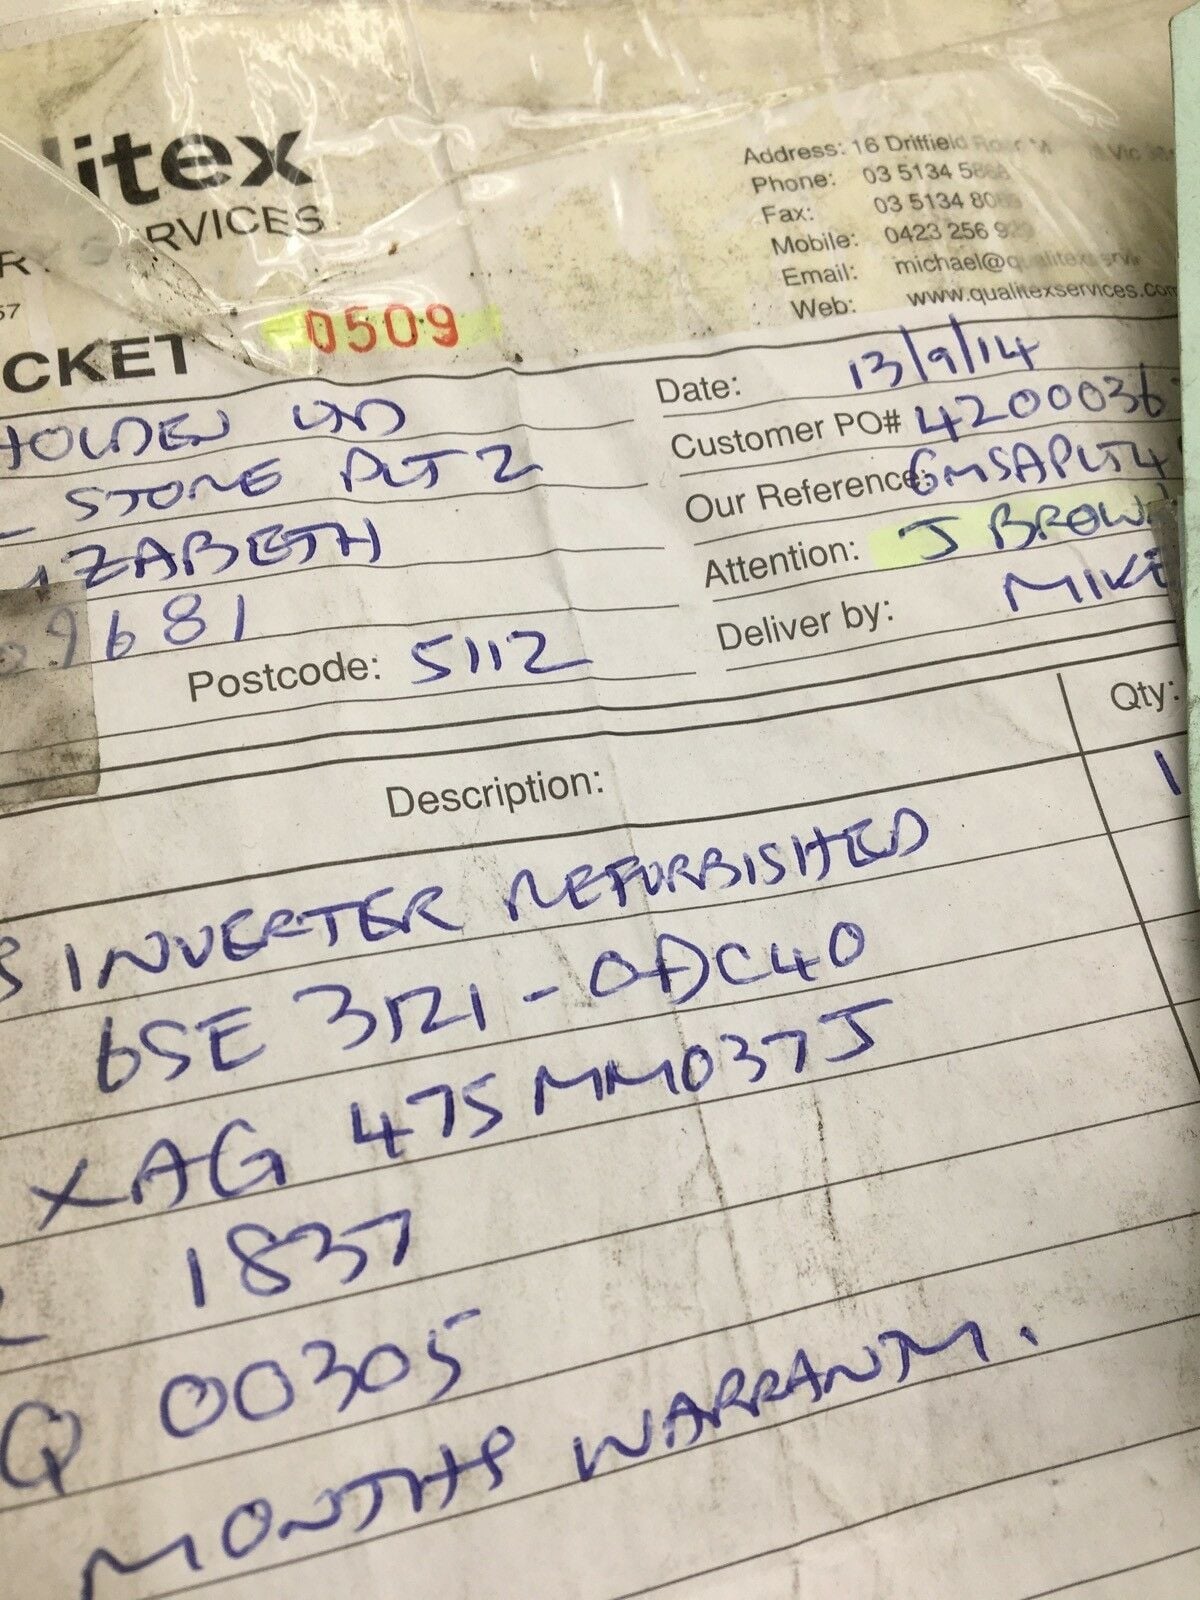 litex
RVICES
Address: 16 Driffield
Phone: 03 5134
Fax: 03 5134
Mobile: 0423 256
Email: michael@
Web: www.qualitexservices.com
57
CKET 0509
HOLDEN LTD
STORE PLT 2
ZABETH
9681
Postcode: 5112
Date: 13/9/14
Customer PO# 4200036
Our Reference: GMSAPLT4
Attention: J BROWN
Deliver by: MIKE
Description:
Qty:
INVERTER REFURBISHED
1
6SE 3121-0DC40
XAG 475MM037J
1837
Q 00305
MONTHS WARRANTY.